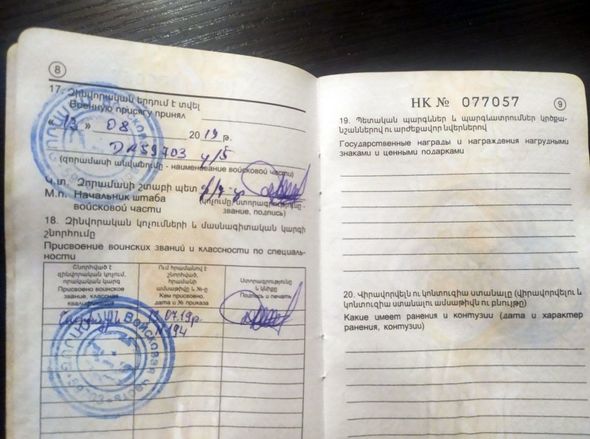 8
17. Զինվորական երդում է տվել
Военную присягу принял
«13» 08 2019 թ.
59703
(զորամասի անվանումը - наименование войсковой части)
Կ.տ. Զորամասի շտաբի պետ
М.п. Начальник штаба
войсковой части
(կոչումը, ստորագրությունը -
звание, подпись)
18. Զինվորական կոչումների և մասնագիտական կարգի
շնորհումը
Присвоение воинских званий и классности по специаль-
ности
Շնորհված է
զինվորական կոչում,
որակական կարգ
Присвоено воинское
звание, классная
Ում հրամանով է
շնորհված,
հրամանի
ամսաթիվ և №-ը
Кем присвоено,
дата и № приказа
Ստորագրությունը
և կնիքը
Подпись и печать
07.19թ.
N 194
НК № 077057
9
19. Պետական պարգևներ և պարգևատրումներ կրծքա-
նշաններով ու արժեքավոր նվերներով
Государственные награды и награждения нагрудными
знаками и ценными подарками
20. Վիրավորվելն ու կոնտուզիա ստանալը (վիրավորվելու և
կոնտուզիա ստանալու ամսաթիվն ու բնույթը)
Какие имеет ранения и контузии (дата и характер
ранения, контузии)